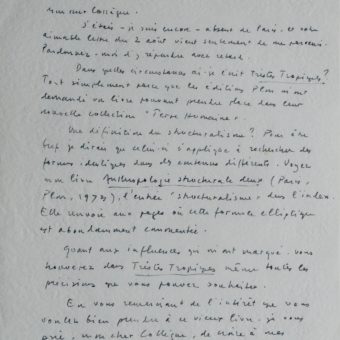 mon cher Collègue,
J'étais - je suis encore - absent de Paris, et votre
aimable lettre du 2 août vient seulement de me parvenir.
Pardonnez-moi d'y répondre avec retard.
Dans quelles circonstances ai-je écrit Tristes Tropiques?
Tout simplement parce que les éditions Plon m'ont
demandé un livre pouvant prendre place dans leur
nouvelle collection "Terre Humaine".
Une définition du structuralisme? Pour être
bref je dirai que celui-ci s'applique à rechercher des
formes identiques dans des contenus différents. Voyez
mon livre Anthropologie structurale deux (Paris,
Plon, 1973), l'entrée "structuralisme" dans l'index.
Elle renvoie aux pages où cette formule elliptique
est abondamment commentée.
Quant aux influences qui m'ont marqué, vous
trouverez dans Tristes Tropiques même toutes les
précisions que vous pouvez souhaiter.
En vous remerciant de l'intérêt que vous
voulez bien prendre à ce vieux livre, je vous
prie, mon cher Collègue, de croire à mes